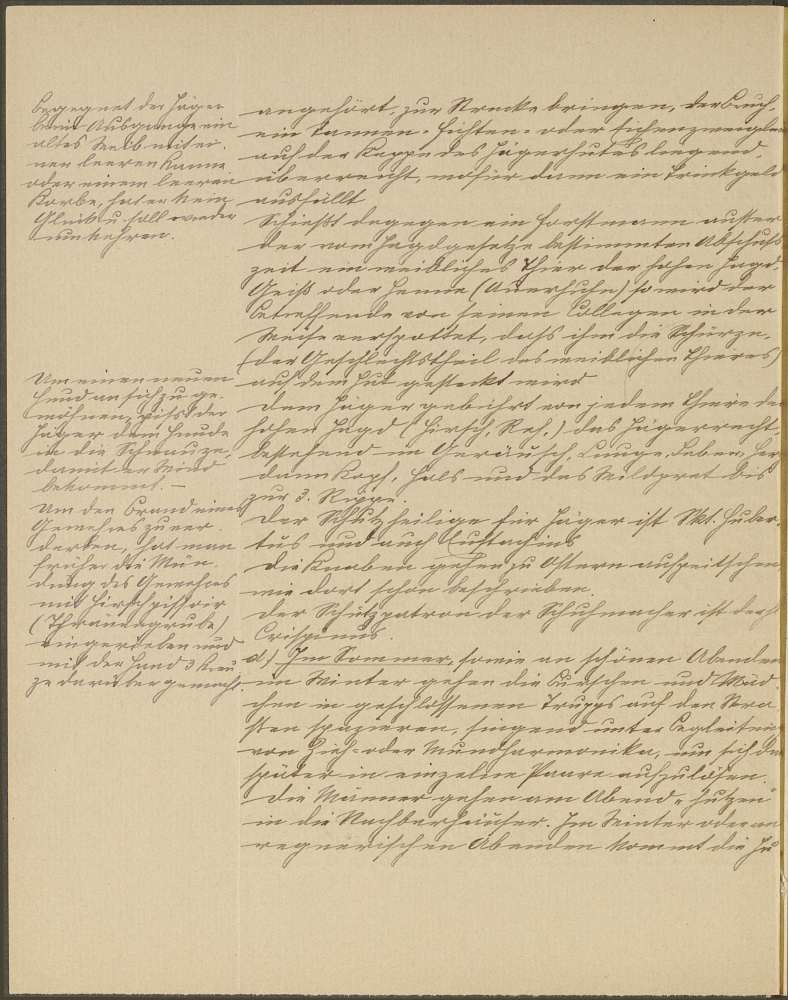 Begegnet der Jäger
beim Ausgange ein
altes Weib mit ei-
nen leeren Kanne
oder einem leeren
Korbe, hat er kein
Glück u. soll wieder
umkehren.
Um einen neuen
Hund an sich zu ge-
wöhnen, pißt der
Jäger dem Hunde
in die Schnauze,
damit er Wind
bekommt. —
Um den Brand eines
Gewehres zu ver-
derben, hat man
früher die Mün-
dung des Gewehres
mit Hirschpissoir
(Thränengrube)
eingerieben und
mit der Hand 3 Kreu
ze darüber gemacht.
angehört, zur Strecke bringen, der Bruch,
ein Tannen- Fichten- oder Eichenzweiglein
auf der Kappe des Jägerhutes liegend,
überreicht, wofür dann ein Trinkgeld
ausfällt.
Schießt dagegen ein Forstmann außer
der vom Jagdgesetze bestimmten Abschuß
zeit ein weibliches Thier der hohen Jagd,
Geiß oder Henne (Auerhuhn) so wird der
Betreffende von seinen Collegen in der
Weise verspottet, daß ihm die Schürze,
(der Geschlechtstheil des weiblichen Thieres)
auf dem Hut gesteckt wird.
Dem Jäger gebührt von jedem Thiere der
hohen Jagd (Hirsch, Reh,) das Jägerrecht,
bestehend in Geräusch, Lunge, Leber, Herz
dann Kopf, Hals und das Wildpret bis
zur 3. Rippe.
Der Schutzheilige für Jäger ist Skt. Huber-
tus und auch Eustachius
Die Knaben gehen zu Ostern aufpeitschen,
wie dort schon beschrieben.
Der Schutzpatron der Schuhmacher ist der hl
Crispinus.
d) Im Sommer, sowie an schönen Abenden
im Winter gehen die Burschen und Mäd
chen in geschlossenen Trupps auf den Stra
ßen spazieren, singend unter Begleitung
von Zieh- oder Mundharmonika, um sich dann
später in einzelne Paare aufzulösen.
Die Männer gehen am Abend „hutzen"
in die Nachbarhäuser. Im Winter oder an
regnerischen Abenden kommt die Ju